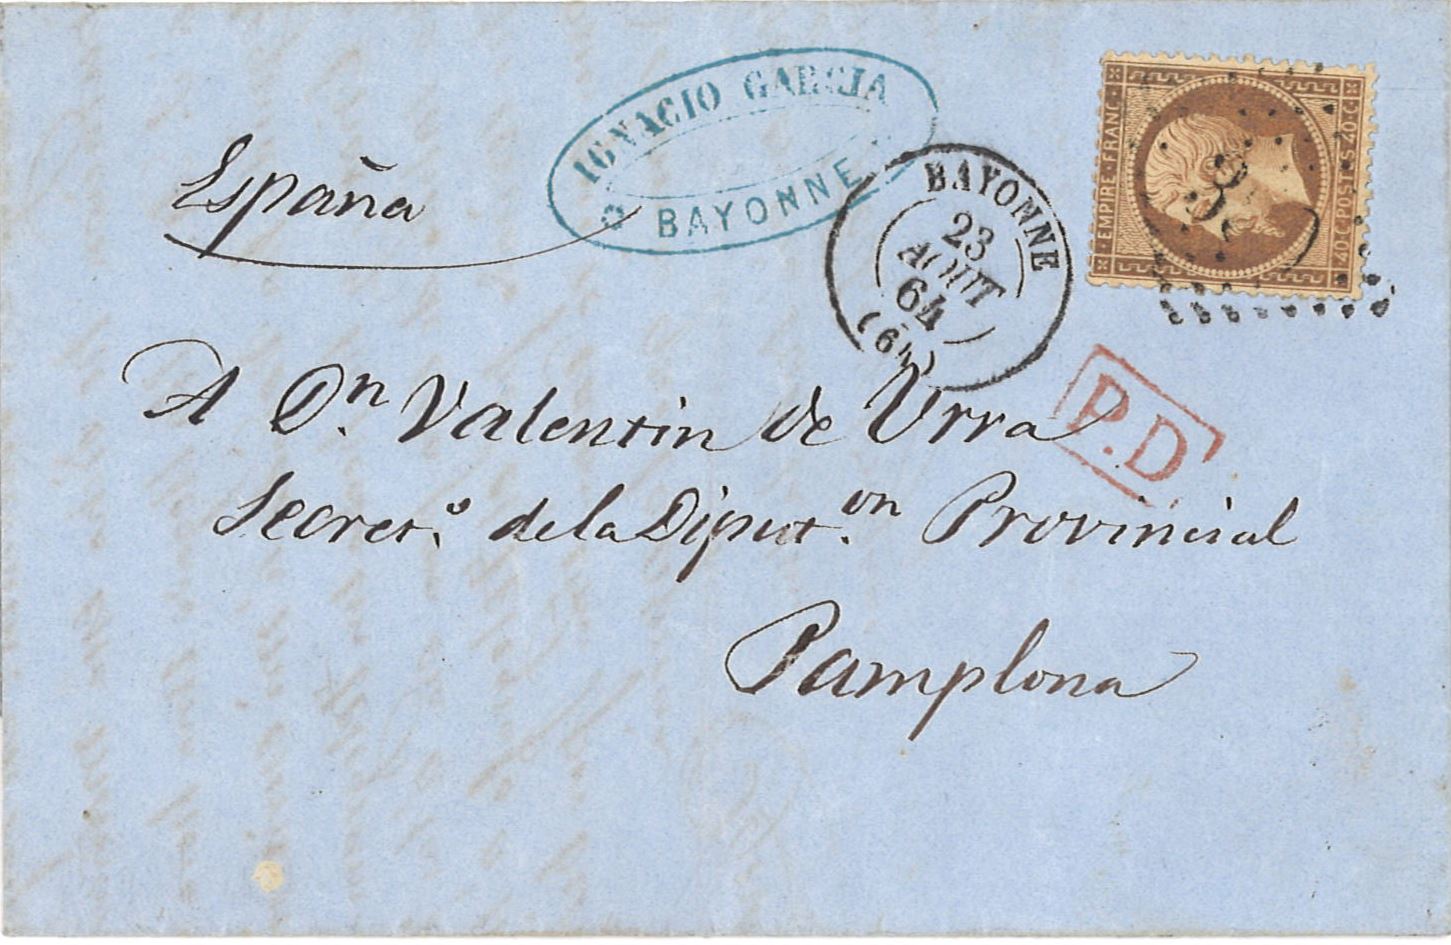 IGNACIO GARCIA
BAYONNE
España
BAYONNE
23
AOUT
64
(64)
EMPIRE FRANC.
40 C POSTES 40 C
P.D
A Dn. Valentin de Urra
Secret.º de la Diput.on Provincial
Pamplona